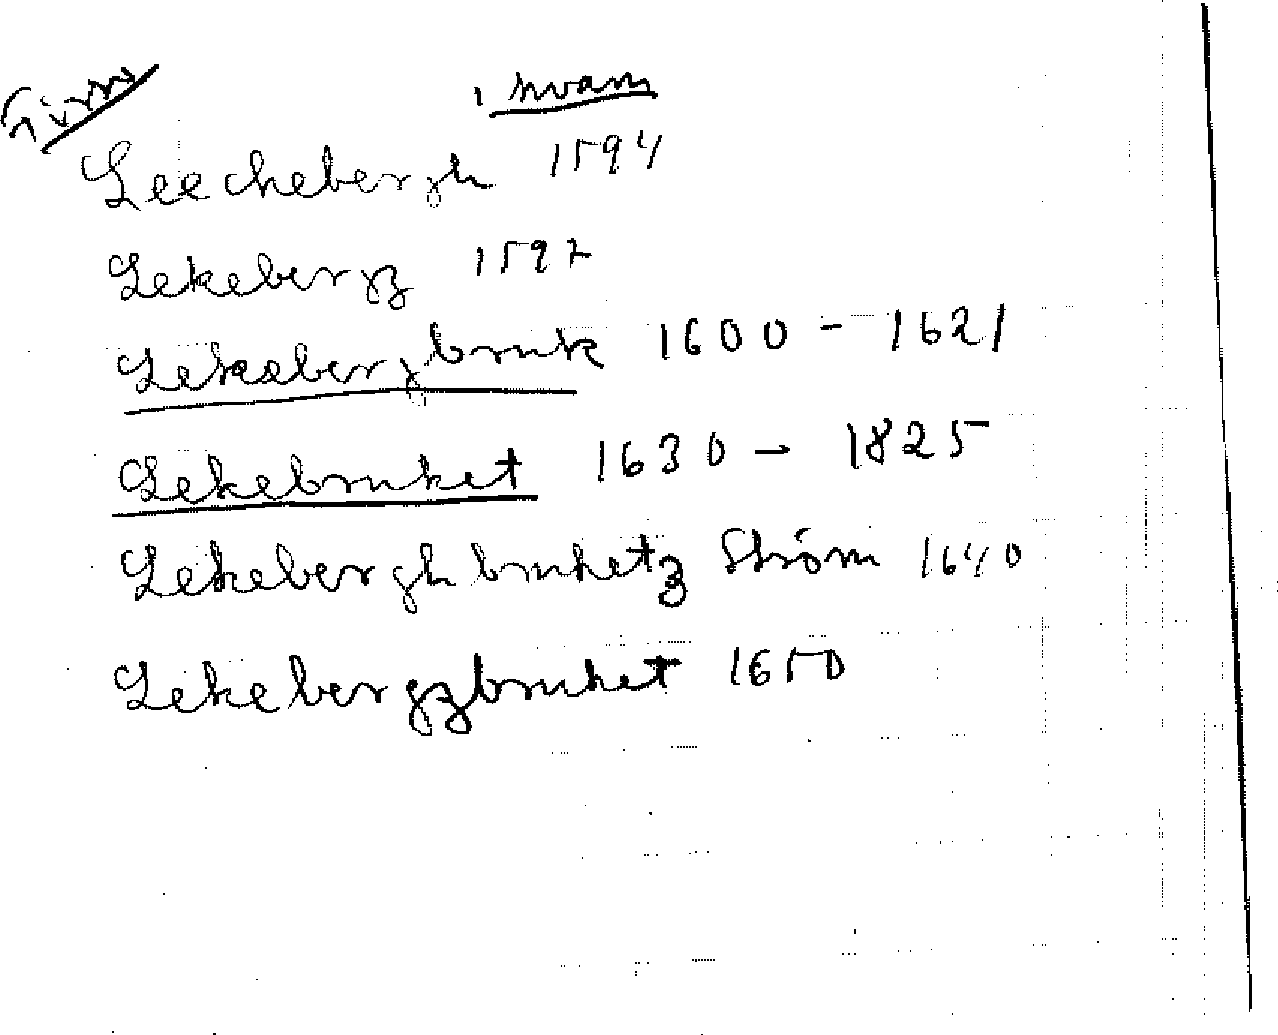 i kvarn
Leechebergh 1594
Lekebergz 1592
Lekeberg,bruk 1600 - 1621
Lekebruket 1630 - 1825
Lekebergh bruketz Ström 1640
Lekebergzbruket 1650